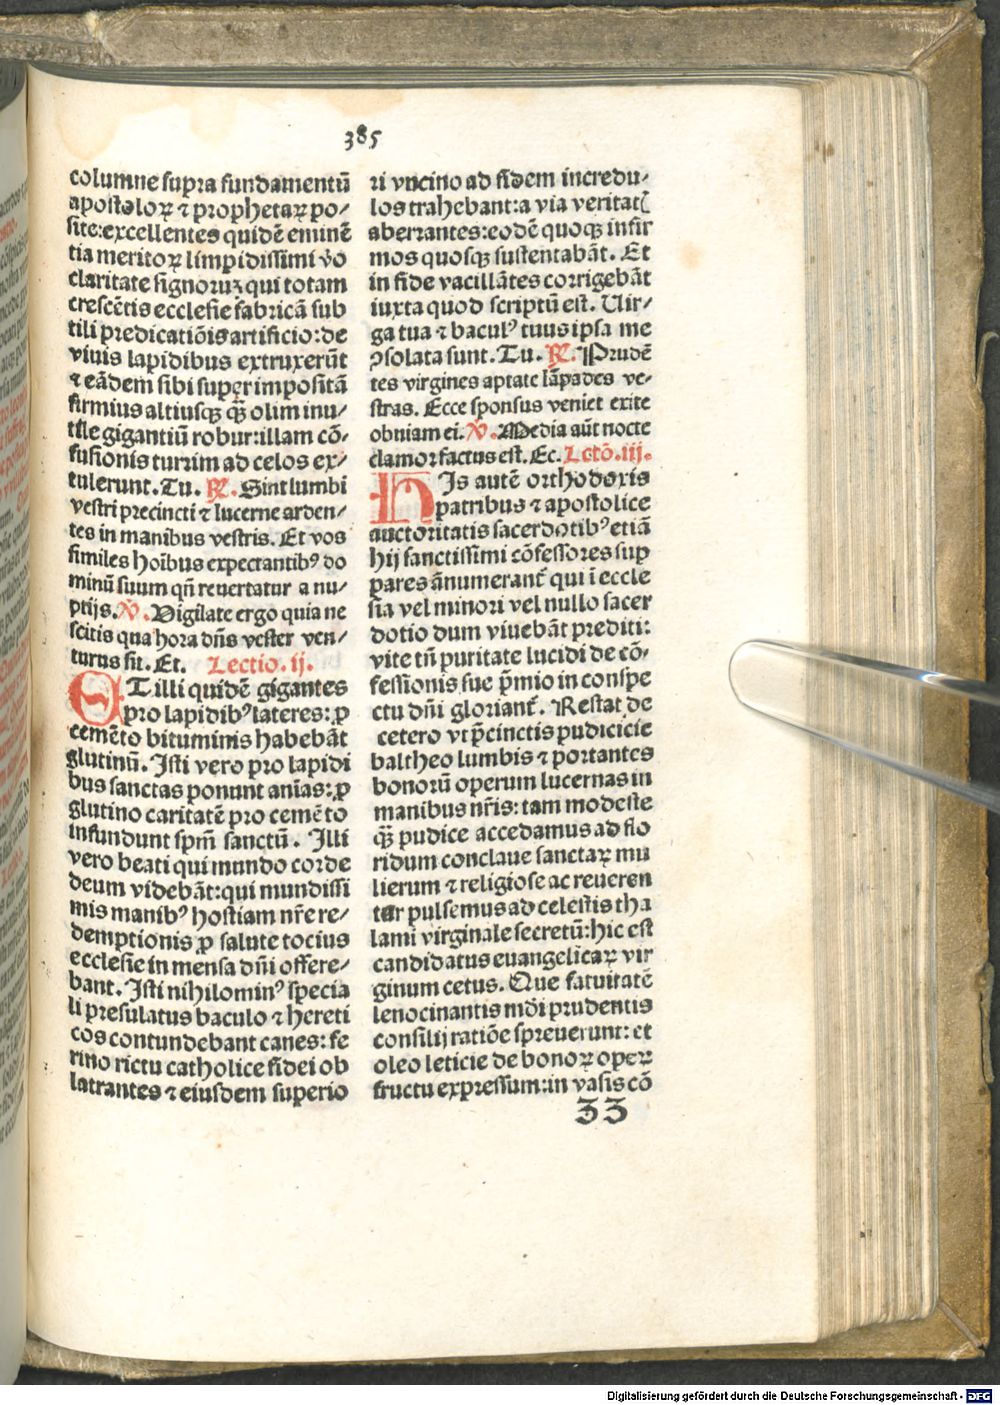 385
columne supra fundamentū
apostoloꝝ ⁊ prophetaꝝ po⸗
site:excellentes quidē eminē
tia meritoꝝ limpidissimi v̄o
claritate signoruꝫ qui totam
crescētis ecclesie fabricā sub
tili predicatiōis artificio:de
viuis lapidibus extruxerūt
⁊ eādem sibi superimpositā
firmius altiusqꝫ qꝫ̄ olim inu⸗
tile gigantiū robur:illam cō⸗
fusionis turrim ad celos ex⸗
tulerunt.Tu. ℞. Sint lumbi
vestri precincti ⁊ lucerne arden⸗
tes in manibus vestris. Et vos
similes hoībus expectantibꝰ do
minū suum qn̄ reuertatur a nu⸗
ptijs. ℣. Vigilate ergo quia ne
scitis qua hora dn̄s vester ven⸗
turus sit. Et. Lectio.ij.
ET illi quidē gigantes
pro lapidibꝰ lateres:ꝓ
cemēto bituminis habebāt
glutinū. Isti vero pro lapidi
bus sanctas ponunt anīas:ꝓ
glutino caritatē pro cemēto
infundunt spm̄ sanctū. Illi
vero beati qui mundo corde
deum videbāt:qui mundissi
mis manibꝰ hostiam nr̄e re⸗
demptionis ꝓ salute tocius
ecclesie in mensa dn̄i offere⸗
bant. Isti nihilominꝰ specia
li presulatus baculo ⁊ hereti
cos contundebant canes: fe
rino rictu catholice fidei ob
latrantes ⁊ eiusdem superio
ri vncino ad fidem incredu⸗
los trahebant:a via veritatꝭ
aberrantes:eodē quoqꝫ infir
mos quosqꝫ sustentabāt. Et
in fide vacillātes corrigebāt
iuxta quod scriptū est. Uir⸗
ga tua ⁊ baculꝰ tuus ipsa me
ꝯsolata sunt. Tu. ℞. Prudē
tes virgines aptate lāpades ve⸗
stras. Ecce sponsus veniet exite
obuiam ei. ℣. Media aūt nocte
clamor factus est. Ec. Lctō.iij.
HIs autē orthodoxis
patribus ⁊ apostolice
auctoritatis sacerdotibꝰ etiā
hij sanctissimi cōfessores suꝑ
pares ānumerant᷑ qui ī eccle
sia vel minori vel nullo sacer
dotio dum viuebāt prediti:
vite tn̄ puritate lucidi de cō⸗
fessionis sue p̄mio in conspe
ctu dn̄i gloriant᷑. Restat de
cetero vt p̄cinctis pudicicie
baltheo lumbis ⁊ portantes
bonorū operum lucernas in
manibus nr̄is: tam modeste
qꝫ̄ pudice accedamus ad flo
ridum conclaue sanctaꝝ mu
lierum ⁊ religiose ac reueren
ter pulsemus ad celestis tha
lami virginale secretū:hic est
candidatus euangelicaꝝ vir
ginum cetus. Que fatuitatē
lenocinantis mūdi prudentis
consilij ratiōe spreuerunt: et
oleo leticie de bonoꝝ operꝝ
fructu expressum:in vasis cō
33
Digitalisierung gefördert durch die Deutsche Forschungsgemeinschaft - DFG